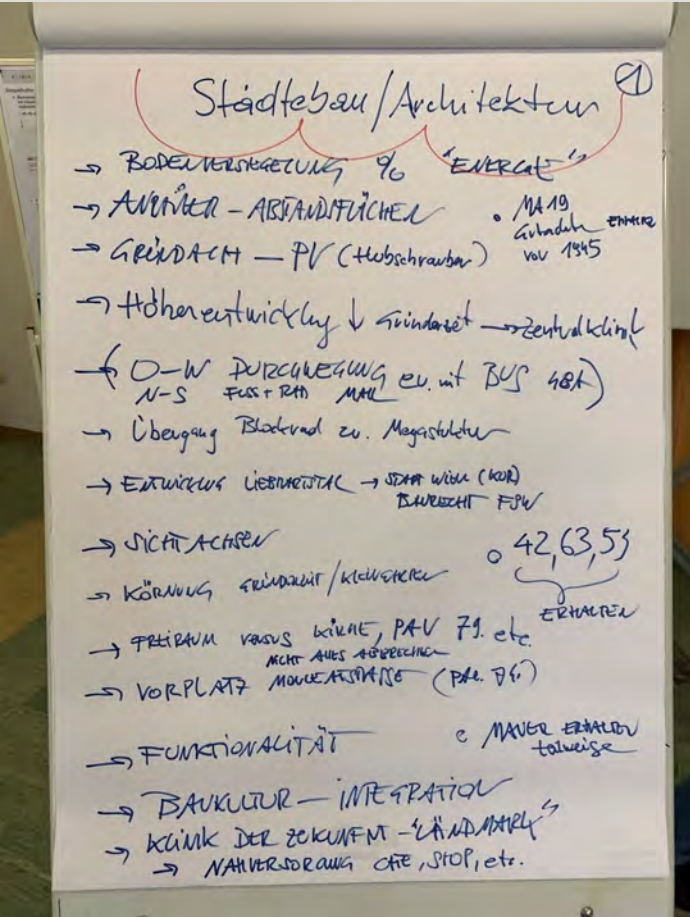 ①
Städtebau/Architektur
→ BODENVERSIEGELUNG % "ENERGIE"
→ ANRAINER – ABSTANDSFLÄCHEN
• MA 19
Gutachten ERHALTE
vor 1945
→ GRÜNDACH — PV (Hubschrauber)
→ Höhenentwicklg ↓ Gründerzeit → Zentralklinik
→ (O–W DURCHWEGUNG ev. mit BUS 48A)
N–S FUSS + RAD
→ Übergang Blockrand zu. Megastruktur
→ ENTWICKLUNG LIEBHARTSTAL → STADT WIEN (KUR)
BAURECHT FSW
→ SICHTACHSEN
→ KÖRNUNG GRÜNDERZEIT/KLEINGARTEN
o 42,63,55
ERHALTEN
→ FREIRAUM VERSUS KIRCHE, PAV 79. etc.
NICHT ALLES ABBRECHEN
→ VORPLATZ MONTLEARTSTRASSE (PAV.
→ FUNKTIONALITÄT
• MAUER ERHALTEN
teilweise
→ BAUKULTUR — INTEGRATION
→ KLINIK DER ZUKUNFT – "LÄNDMARK"
→ NAHVERSORGUNG CAFE, SHOP, etc.